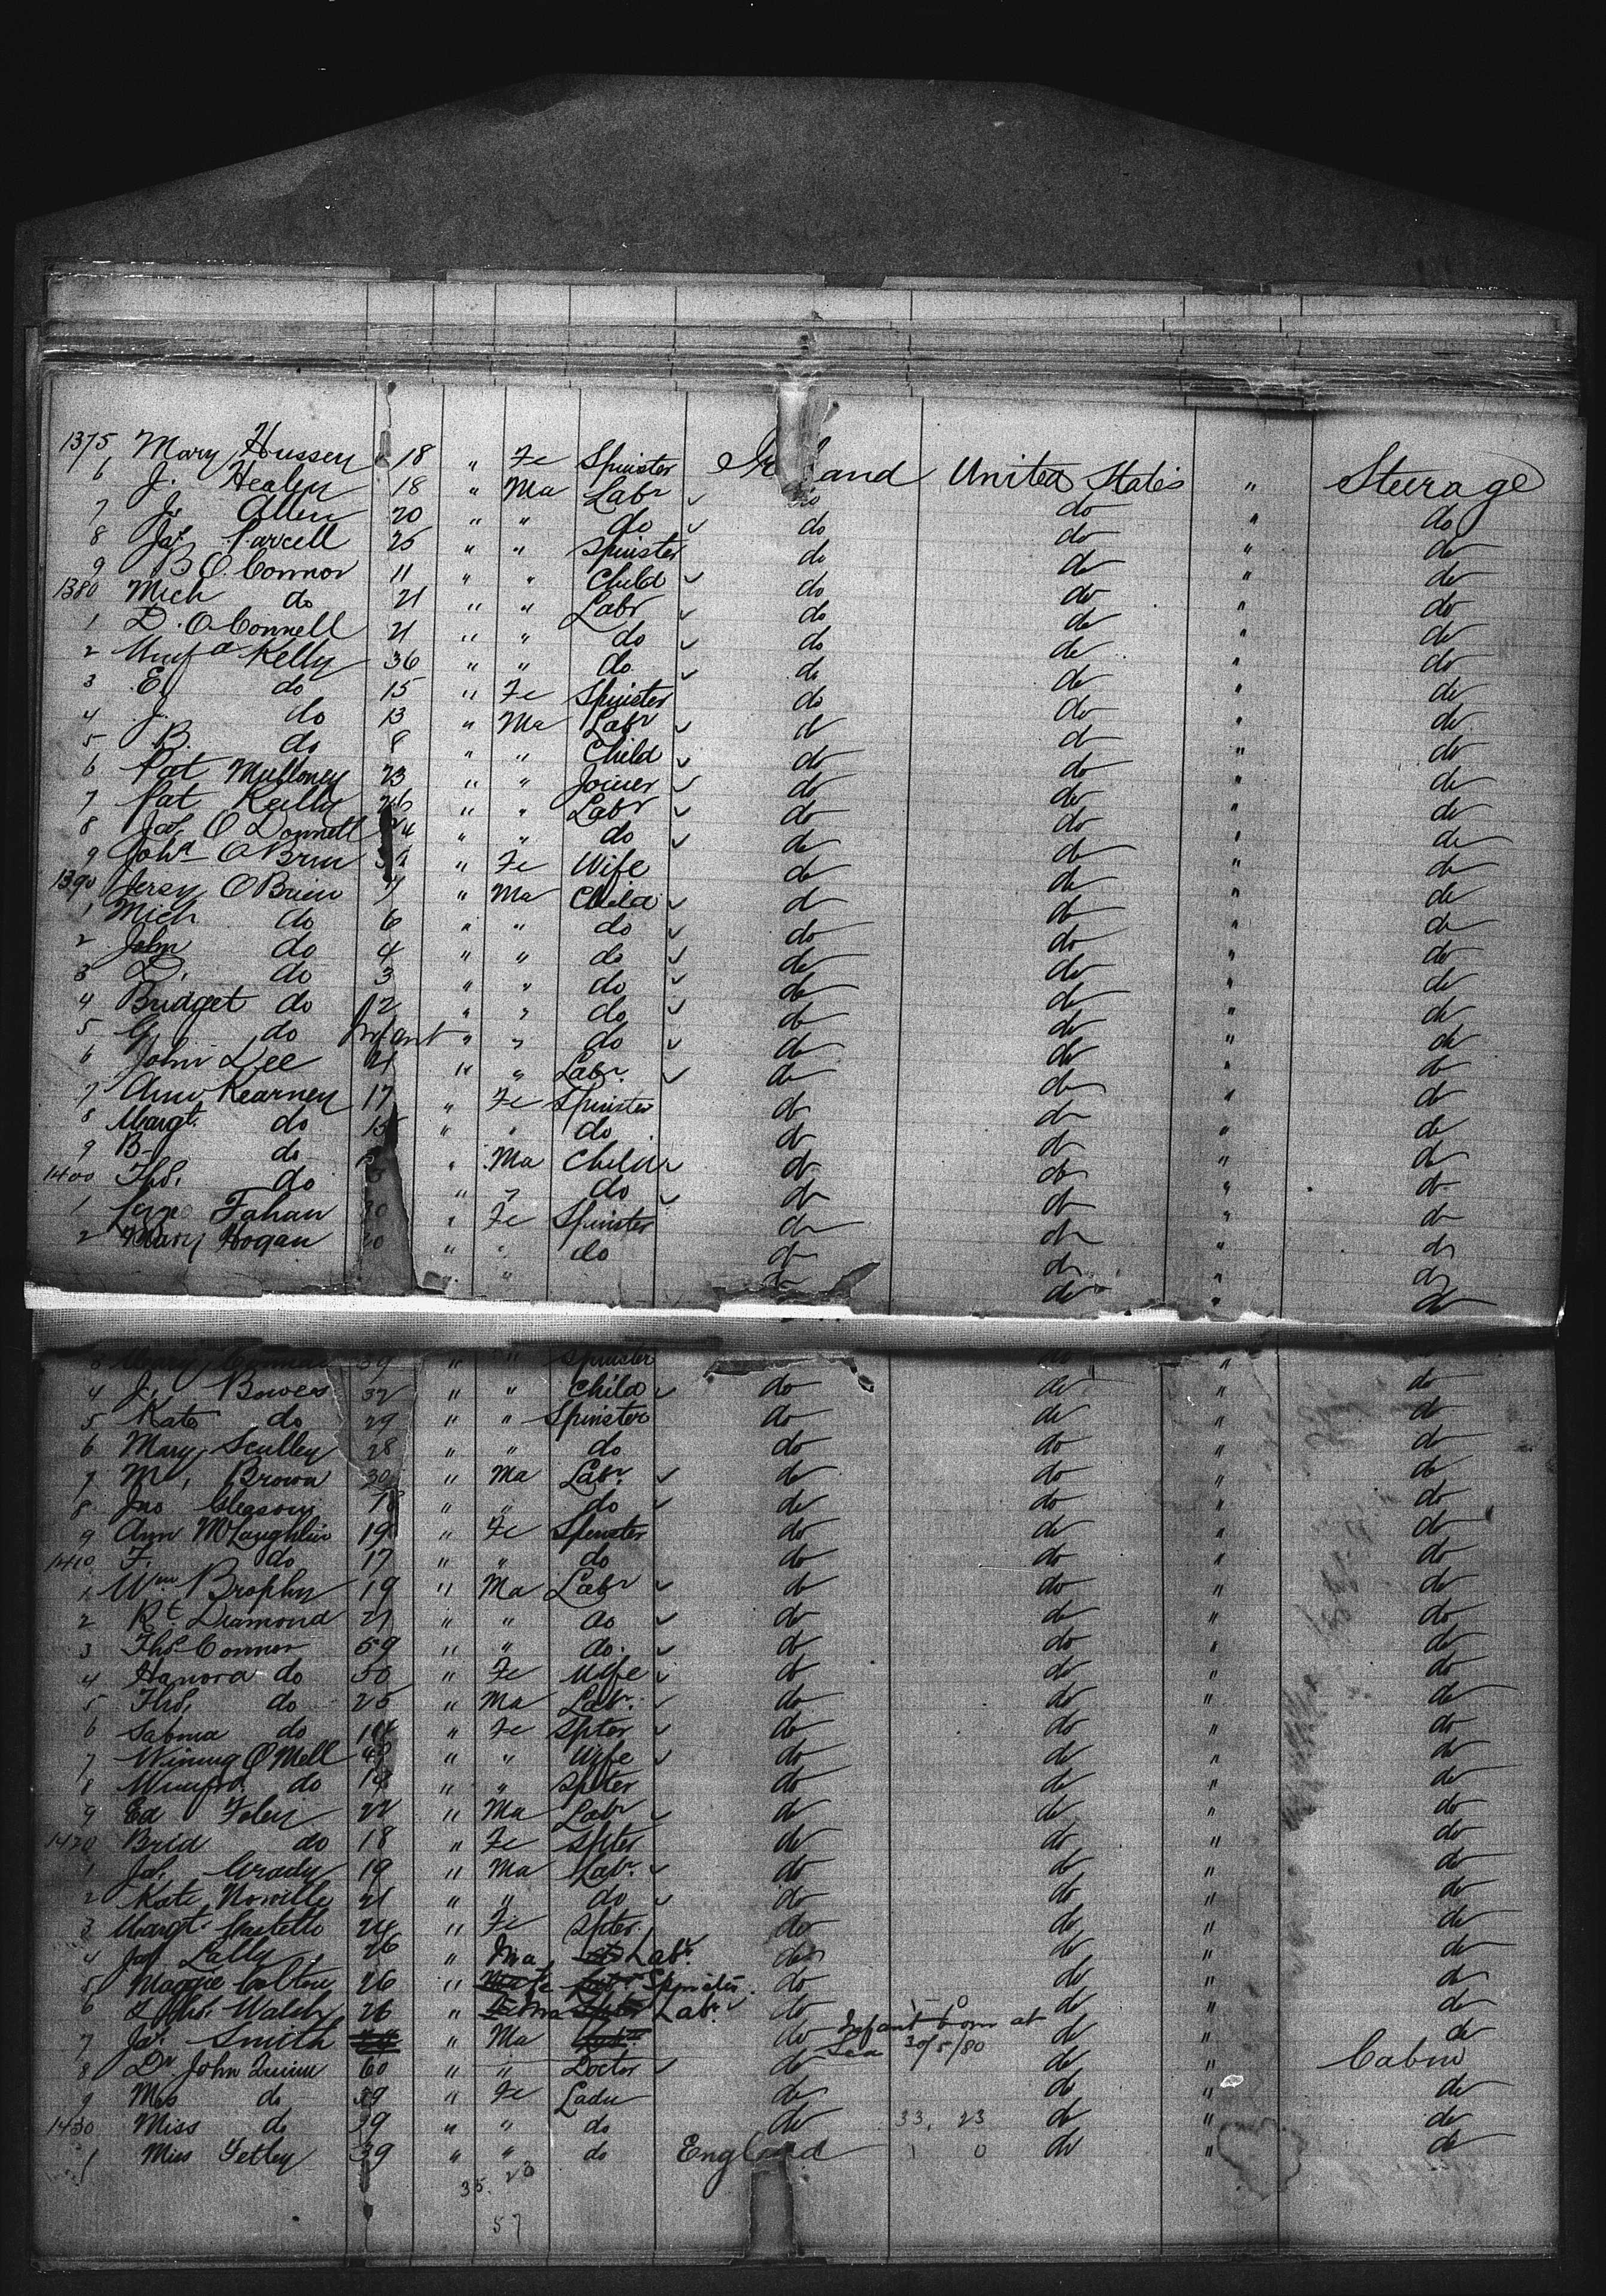 1375 Mary Hussey 18 " Fe Spinster Ireland United States " Steerage
6 J. Healey 18 " Ma Labr ✓ do do " do
7 J. Allen 20 " " do ✓ do do " do
8 Jas. Parcell 25 " " Spinster do do " do
9 B O Connor 11 " " Child ✓ do do " do
1380 Mich do 21 " " Labr ✓ do do " do
1 D. O Connell 21 " " do ✓ do do " do
2 Kelly 36 " " do ✓ do do " do
3 E. do 15 " Fe Spinster do do " do
4 J. do 13 " Ma Labr ✓ do do " do
5 B. do 8 " " Child ✓ do do " do
6 Pat Mulloney 23 " " Joiner ✓ do do " do
7 Pat Reilly 26 " " Labr ✓ do do " do
8 Jas. O Donnell " " do ✓ do do " do
9 Joha O Brien " Fe Wife do do " do
1390 Jersy O Brien 7 " Ma Child ✓ do do " do
1 Mich do 6 " " do ✓ do do " do
2 John do 4 " " do ✓ do do " do
3 D. do 3 " " do ✓ do do " do
4 Bridget do 2 " " do ✓ do do " do
5 G. do Infant " " do ✓ do do " do
6 John Lee 21 " " Labr. ✓ do do " do
7 Ann Kearney 17 " Fe Spinster do do " do
8 Margt. do 15 " " do do do " do
9 B- do " Ma Child ✓ do do " do
1400 Thos. do " " do ✓ do do " do
1 Fahan 20 " Fe Spinster do do " do
2 Mary Hogan 20 " " do do do " do
3 Mary 39 " " Spinster do "
4 J. Bowes 32 " " Child ✓ do do " do
5 Kate do 29 " " Spinster do do " do
6 Mary Sculley 28 " " do do do " do
7 M. Brown 30 " Ma Labr. ✓ do do " do
8 Jno Gleason 18 " " do ✓ do do " do
9 Ann McLaughlin 19 " Fe Spinster do do " do
1410 F. do 17 " " do do do " do
1 Wm Brophy 19 " Ma Labr ✓ do do " do
2 Rt. Diamond 21 " " do ✓ do do " do
3 Thos Connor 59 " " do. ✓ do do " do
4 Hanora do 50 " Fe Wife ✓ do do " do
5 Thos. do 25 " Ma Labr. ✓ do do " do
6 Sabina do " Fe Spter ✓ do do " do
7 Wining O Neill " " Wife ✓ do do " do
8 Winifrd. do 18 " " Spter do do " do
9 Ed Foley 22 " Ma Labr ✓ do do " do
1420 Brid do 18 " Fe Spter do do " do
1 Jas. Grady 19 " Ma Labr. ✓ do do " do
2 Kate Norville 21 " " do ✓ do do " do
3 Margt. Costello 24 " Fe Spter. do do " do
4 Jas Lally 26 " Ma Labr. do do " do
5 Maggie Colten 26 " Fe Spinster. do do " do
6 Thos. Walsh 26 " Ma Labr. ✓ do do " do
7 Jas. Smith " Ma do Infant born at Sea 30/5/80 do " do
8 Dr John Quinn 60 " " Doctor ✓ do do " Cabin
9 Mrs do 59 " Fe Lady do do " do
1430 Miss do 29 " " do do 33, 23 do " do
1 Miss Tetley 39 " " do England 1 0 do " do
35. 23
57